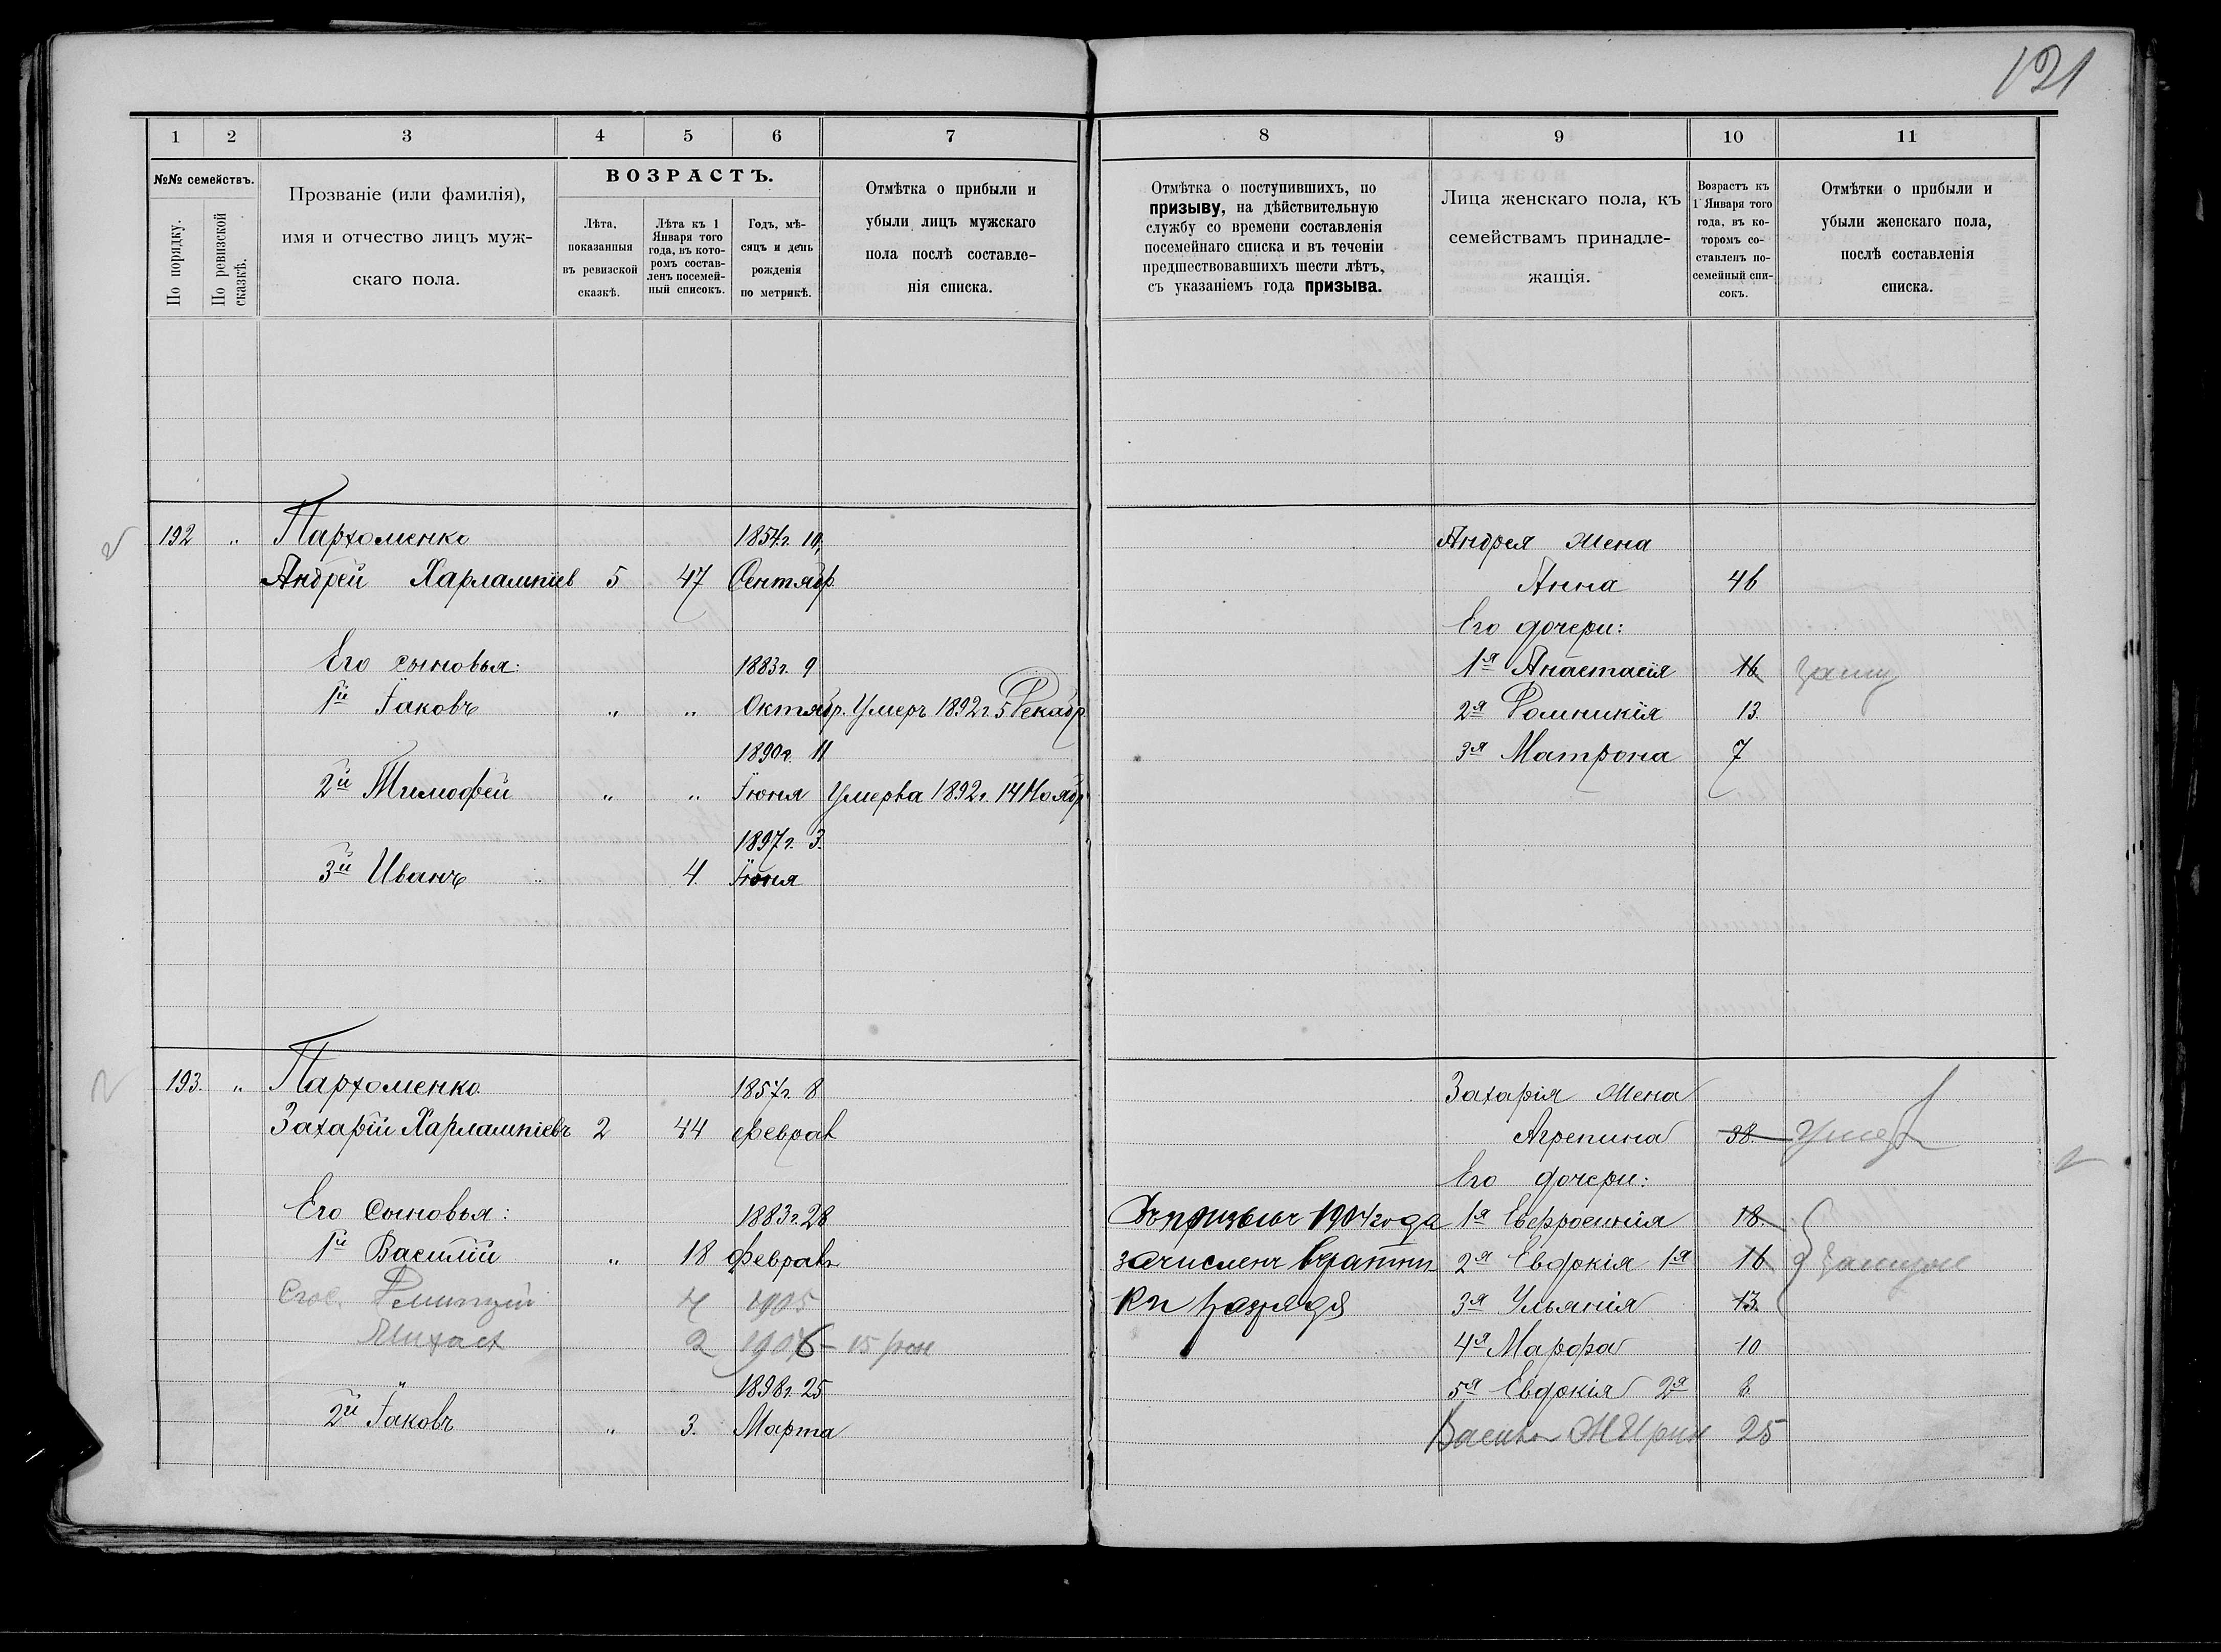 121
1
2
3
4
5
6
7
8
9
10
11
№№ семействъ.
По порядку.
По ревизской сказкѣ.
Прозваніе (или фамилія),
имя и отчество лицъ муж-
скаго пола.
ВОЗРАСТЪ.
Лѣта,
показанныя
въ ревизской
сказкѣ.
Лѣта къ 1
Января того
года, въ кото-
ромъ состав-
ленъ посемей-
ный списокъ.
Годъ, мѣ-
сяцъ и день
рожденія
по метрикѣ.
Отмѣтка о прибыли и
убыли лицъ мужскаго
пола послѣ составле-
нія списка.
Отмѣтка о поступившихъ, по
призыву, на дѣйствительную
службу со времени составленія
посемейнаго списка и въ теченіи
предшествовавшихъ шести лѣтъ,
съ указаніемъ года призыва.
Лица женскаго пола, къ
семействамъ принадле-
жащія.
Возрастъ къ
1 Января того
года, въ ко-
торомъ со-
ставленъ по-
семейный спи-
сокъ.
Отмѣтки о прибыли и
убыли женскаго пола,
послѣ составленія
списка.
192 " Пархоменко 1854 г. 10,
Андрей Харлампіев 5 47 Сентябр
Его сыновья: 1883 г. 9
1й Іаковъ " " Октябр. Умеръ 1892 г. 5 Декабр
1890 г. 11
2й Тимофей " " Іюня Умерва 1892 г. 14 Ноябр
1897 г. 3.
3й Иванъ " 4. Іюня
Андрея жена
Анна 46
Его дочери:
1я Анастасія 16 замуж
2я Домникія 13.
3я Матрона 7
193. " Пархоменко 1857 г. 8
Захарій Харлампіевъ 2 44 феврал
Его сыновья: 1883 г. 28
1й Василій " 18 феврал
Дмитрій 4 1905
Михаил 2 1906 – 15
1898 г. 25
2й Іаковъ " 3. Марта
Въ призывъ 1904 года
зачисленъ
разряда
Захарія жена
Агрепина 38. Умер
Его дочери:
1я Евфросинія 18.
2я Евдокія 1я 16 замужем
3я Ульянія 13.
4я Марфа 10
5я Евдокія 2я 6
Васил ж Ирин 25